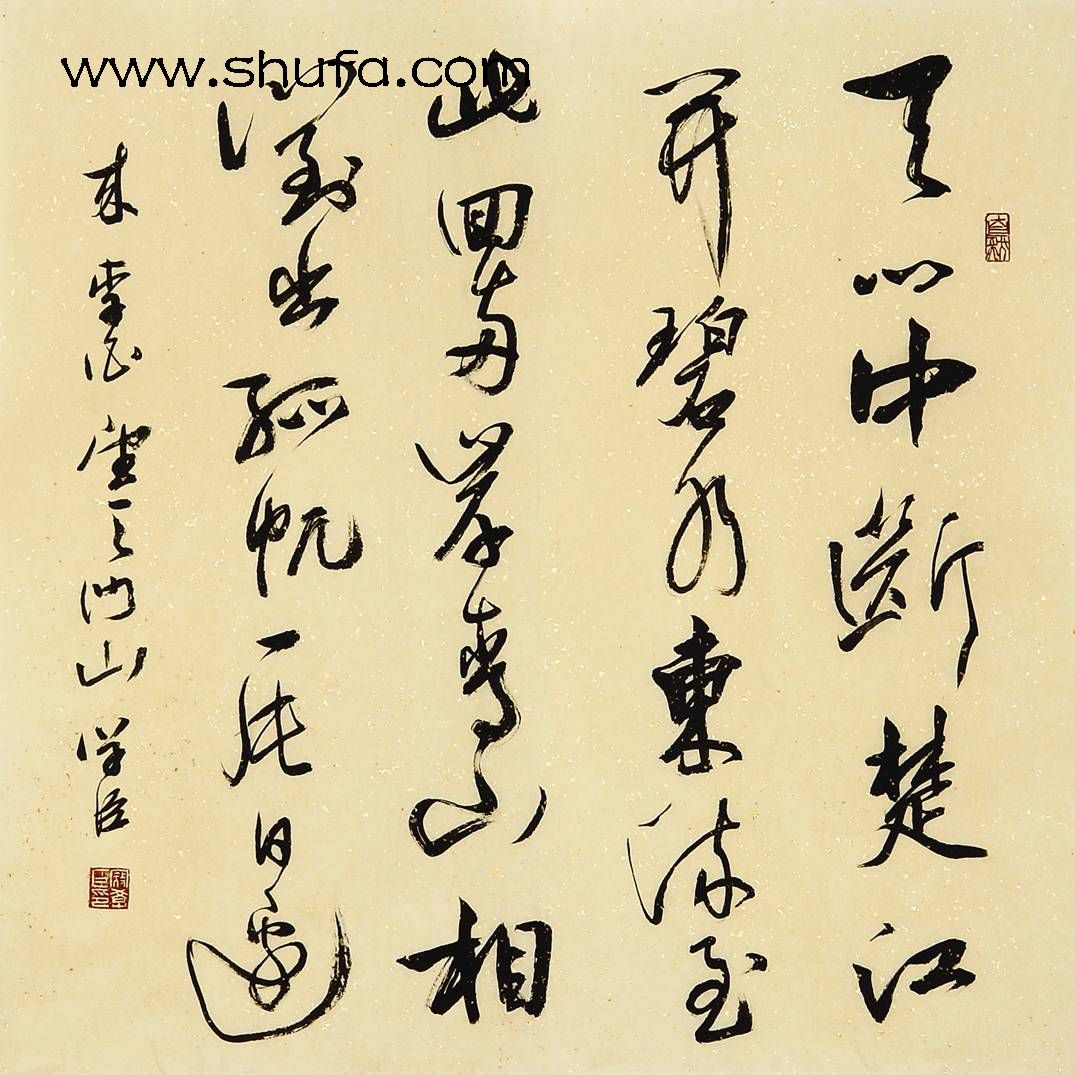 www.shufa.com
天门中斷楚江
开碧水東流至
此回两岸青山相
對出孤帆一片日邊
来 李白望天门山 学臣